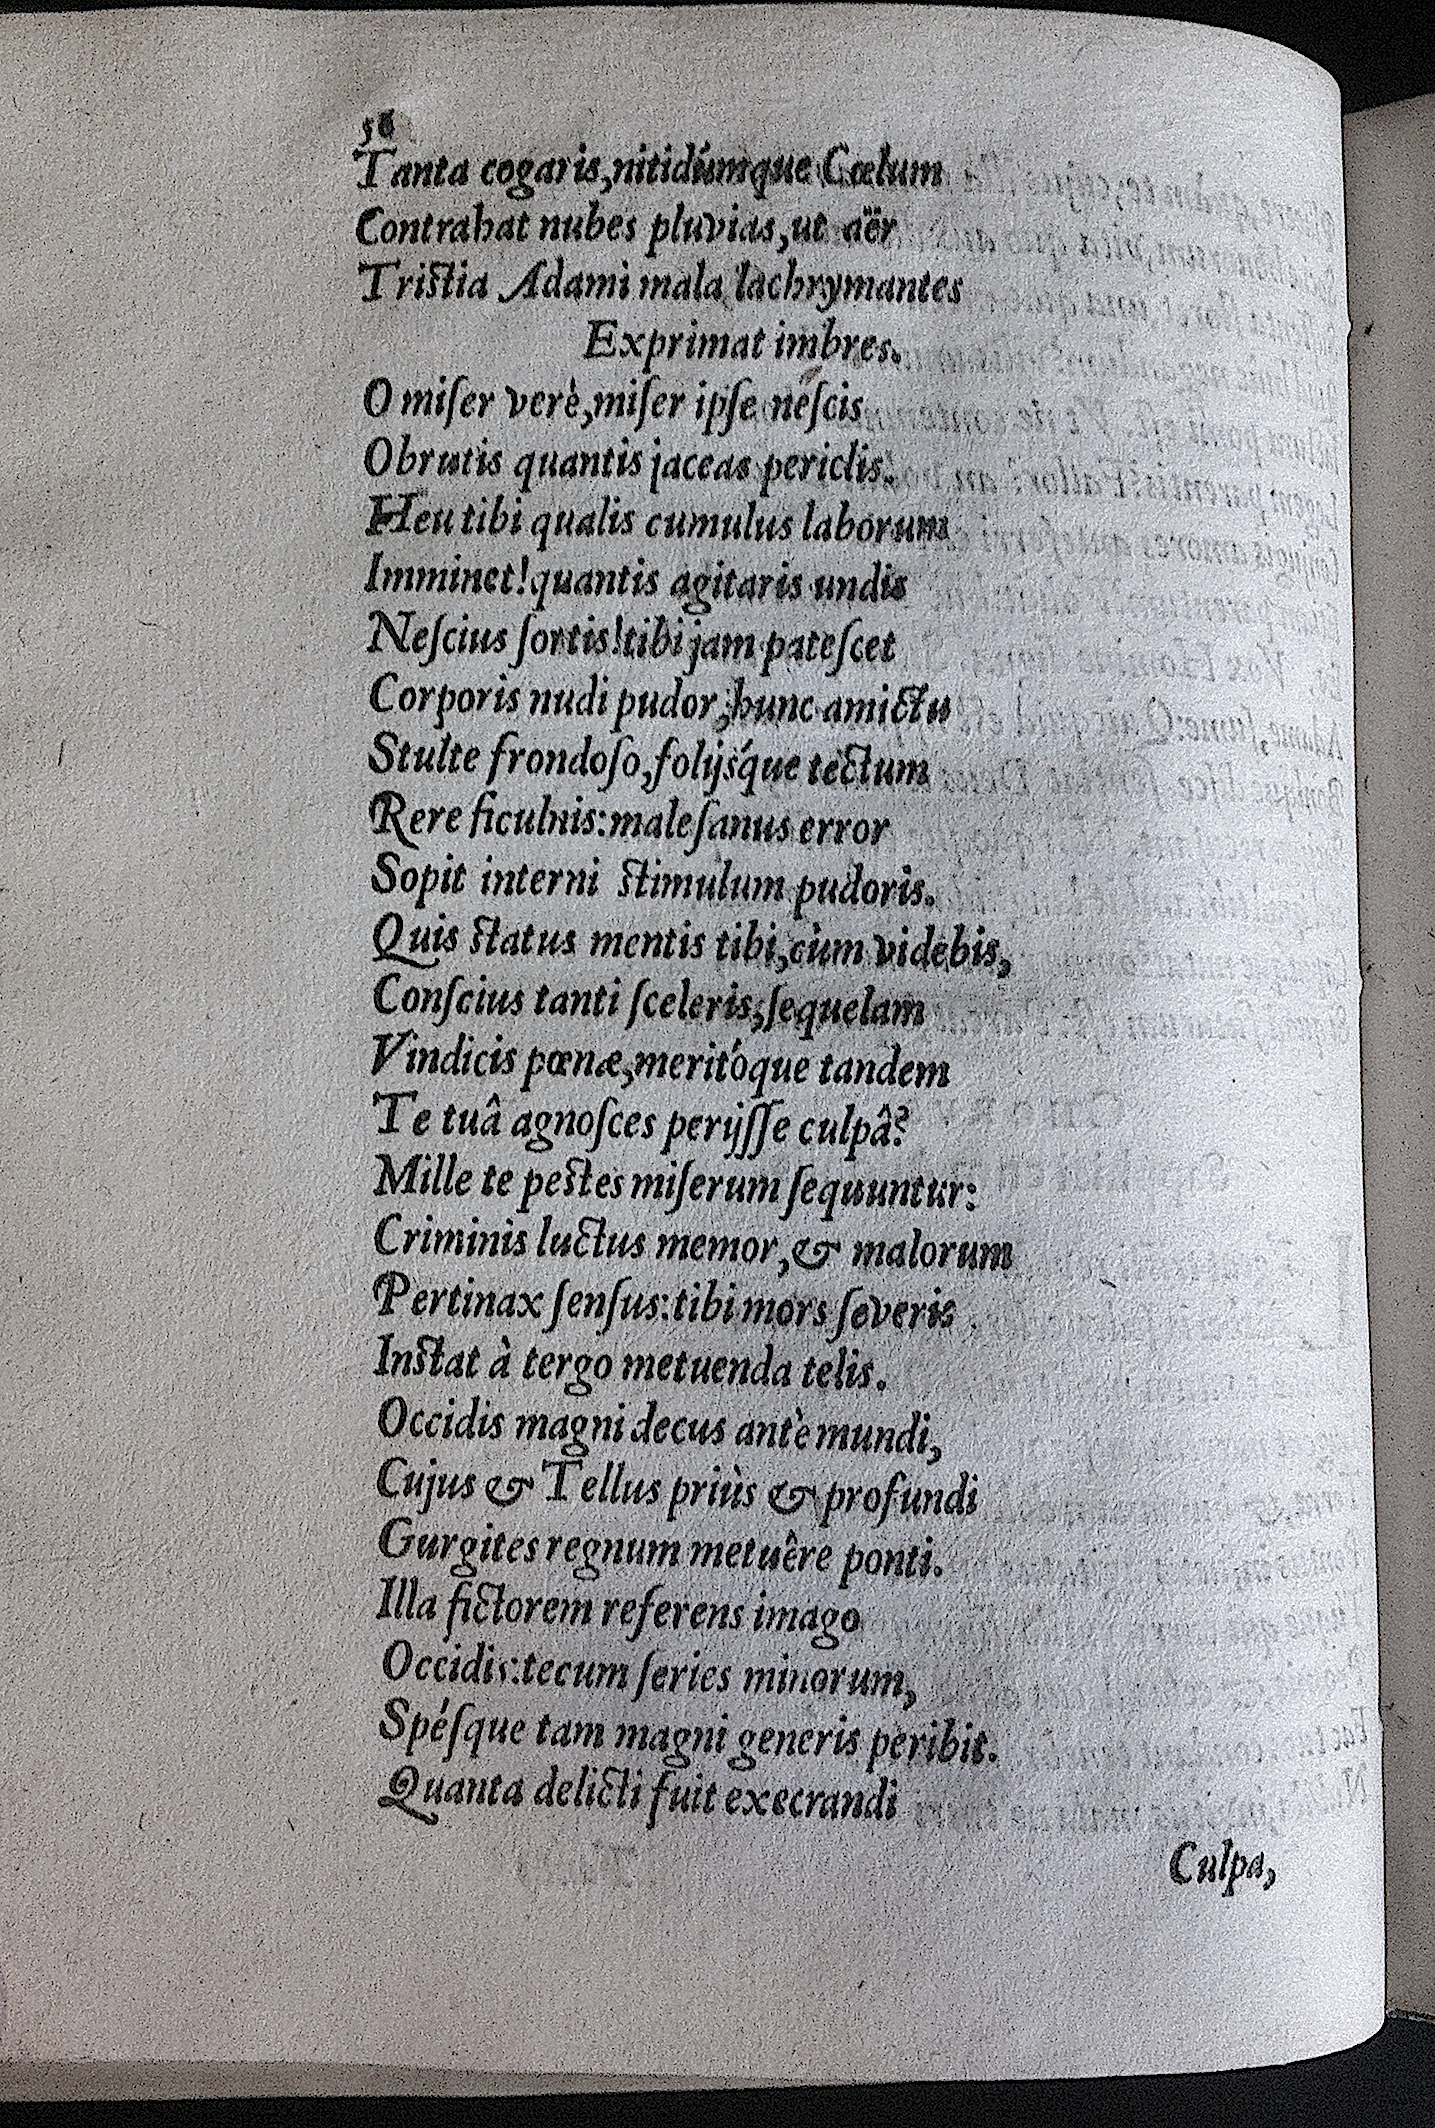 56
Tanta cogaris, nitidúmque Cœlum
Contrahat nubes pluvias, ut aër
Tristia Adami mala lachrymantes
Exprimat imbres.
O miſer verè, miſer ipſe neſcis
Obrutis quantis jaceas periclis.
Heu tibi qualis cumulus laborum
Imminet! quantis agitaris undis
Neſcius ſortis! tibi jam pateſcet
Corporis nudi pudor; hunc amictu
Stulte frondoſo, folijsque tectum
Rere ficulnis: maleſanus error
Sopit interni stimulum pudoris.
Quis status mentis tibi, cùm videbis,
Conſcius tanti ſceleris, ſequelam
Vindicis pœnæ, meritóque tandem
Te tuâ agnoſces perijſſe culpâ?
Mille te pestes miſerum ſequuntur:
Criminis luctus memor, & malorum
Pertinax ſenſus: tibi mors ſeveris
Instat à tergo metuenda telis.
Occidis magni decus antè mundi,
Cujus & Tellus priùs & profundi
Gurgites regnum metuêre ponti.
Illa fictorem referens imago
Occidis: tecum ſeries minorum,
Spéſque tam magni generis peribit.
Quanta delicti fuit execrandi
Culpa,